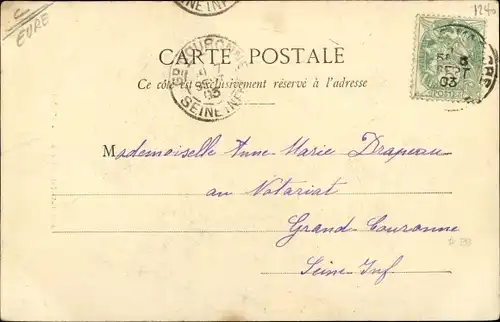 EURE
1240
CARTE POSTALE
Ce côté est exclusivement réservé à l'adresse
SEINE INF
03
Mademoiselle Anne-Marie Drapeau
au Notariat
Grand-Couronne
Seine-Inf